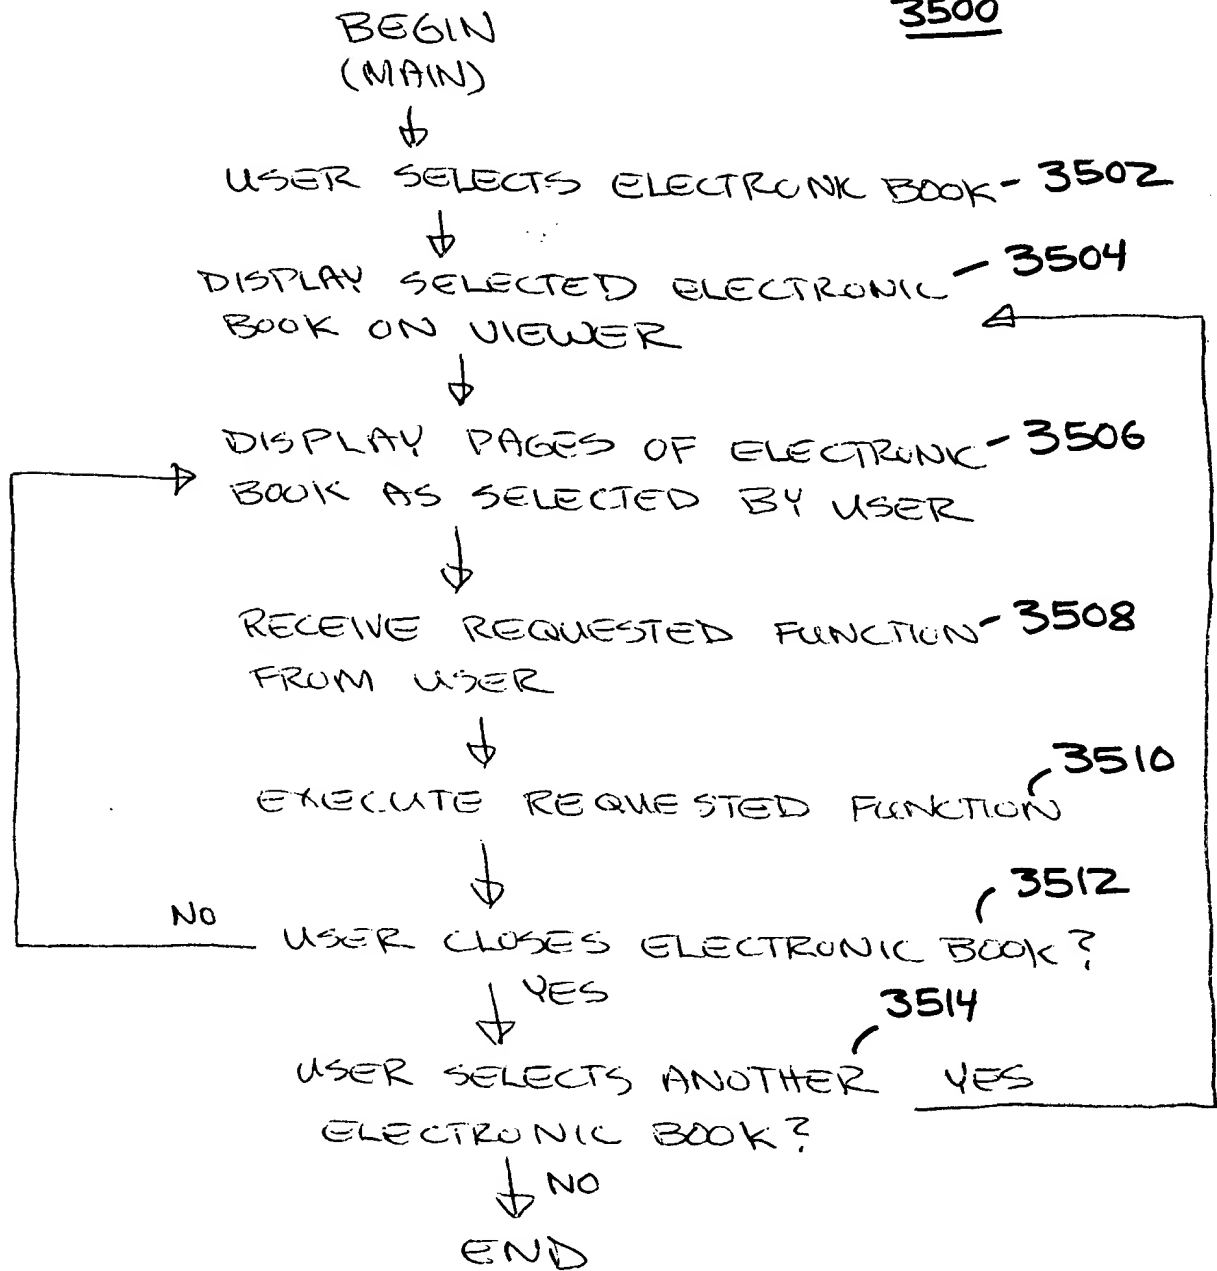 3500
BEGIN
(MAIN)
USER SELECTS ELECTRONIC BOOK - 3502
DISPLAY SELECTED ELECTRONIC - 3504
BOOK ON VIEWER
DISPLAY PAGES OF ELECTRONIC - 3506
BOOK AS SELECTED BY USER
RECEIVE REQUESTED FUNCTION - 3508
FROM USER
3510
EXECUTE REQUESTED FUNCTION
3512
NO USER CLOSES ELECTRONIC BOOK?
YES
3514
USER SELECTS ANOTHER YES
ELECTRONIC BOOK?
NO
END